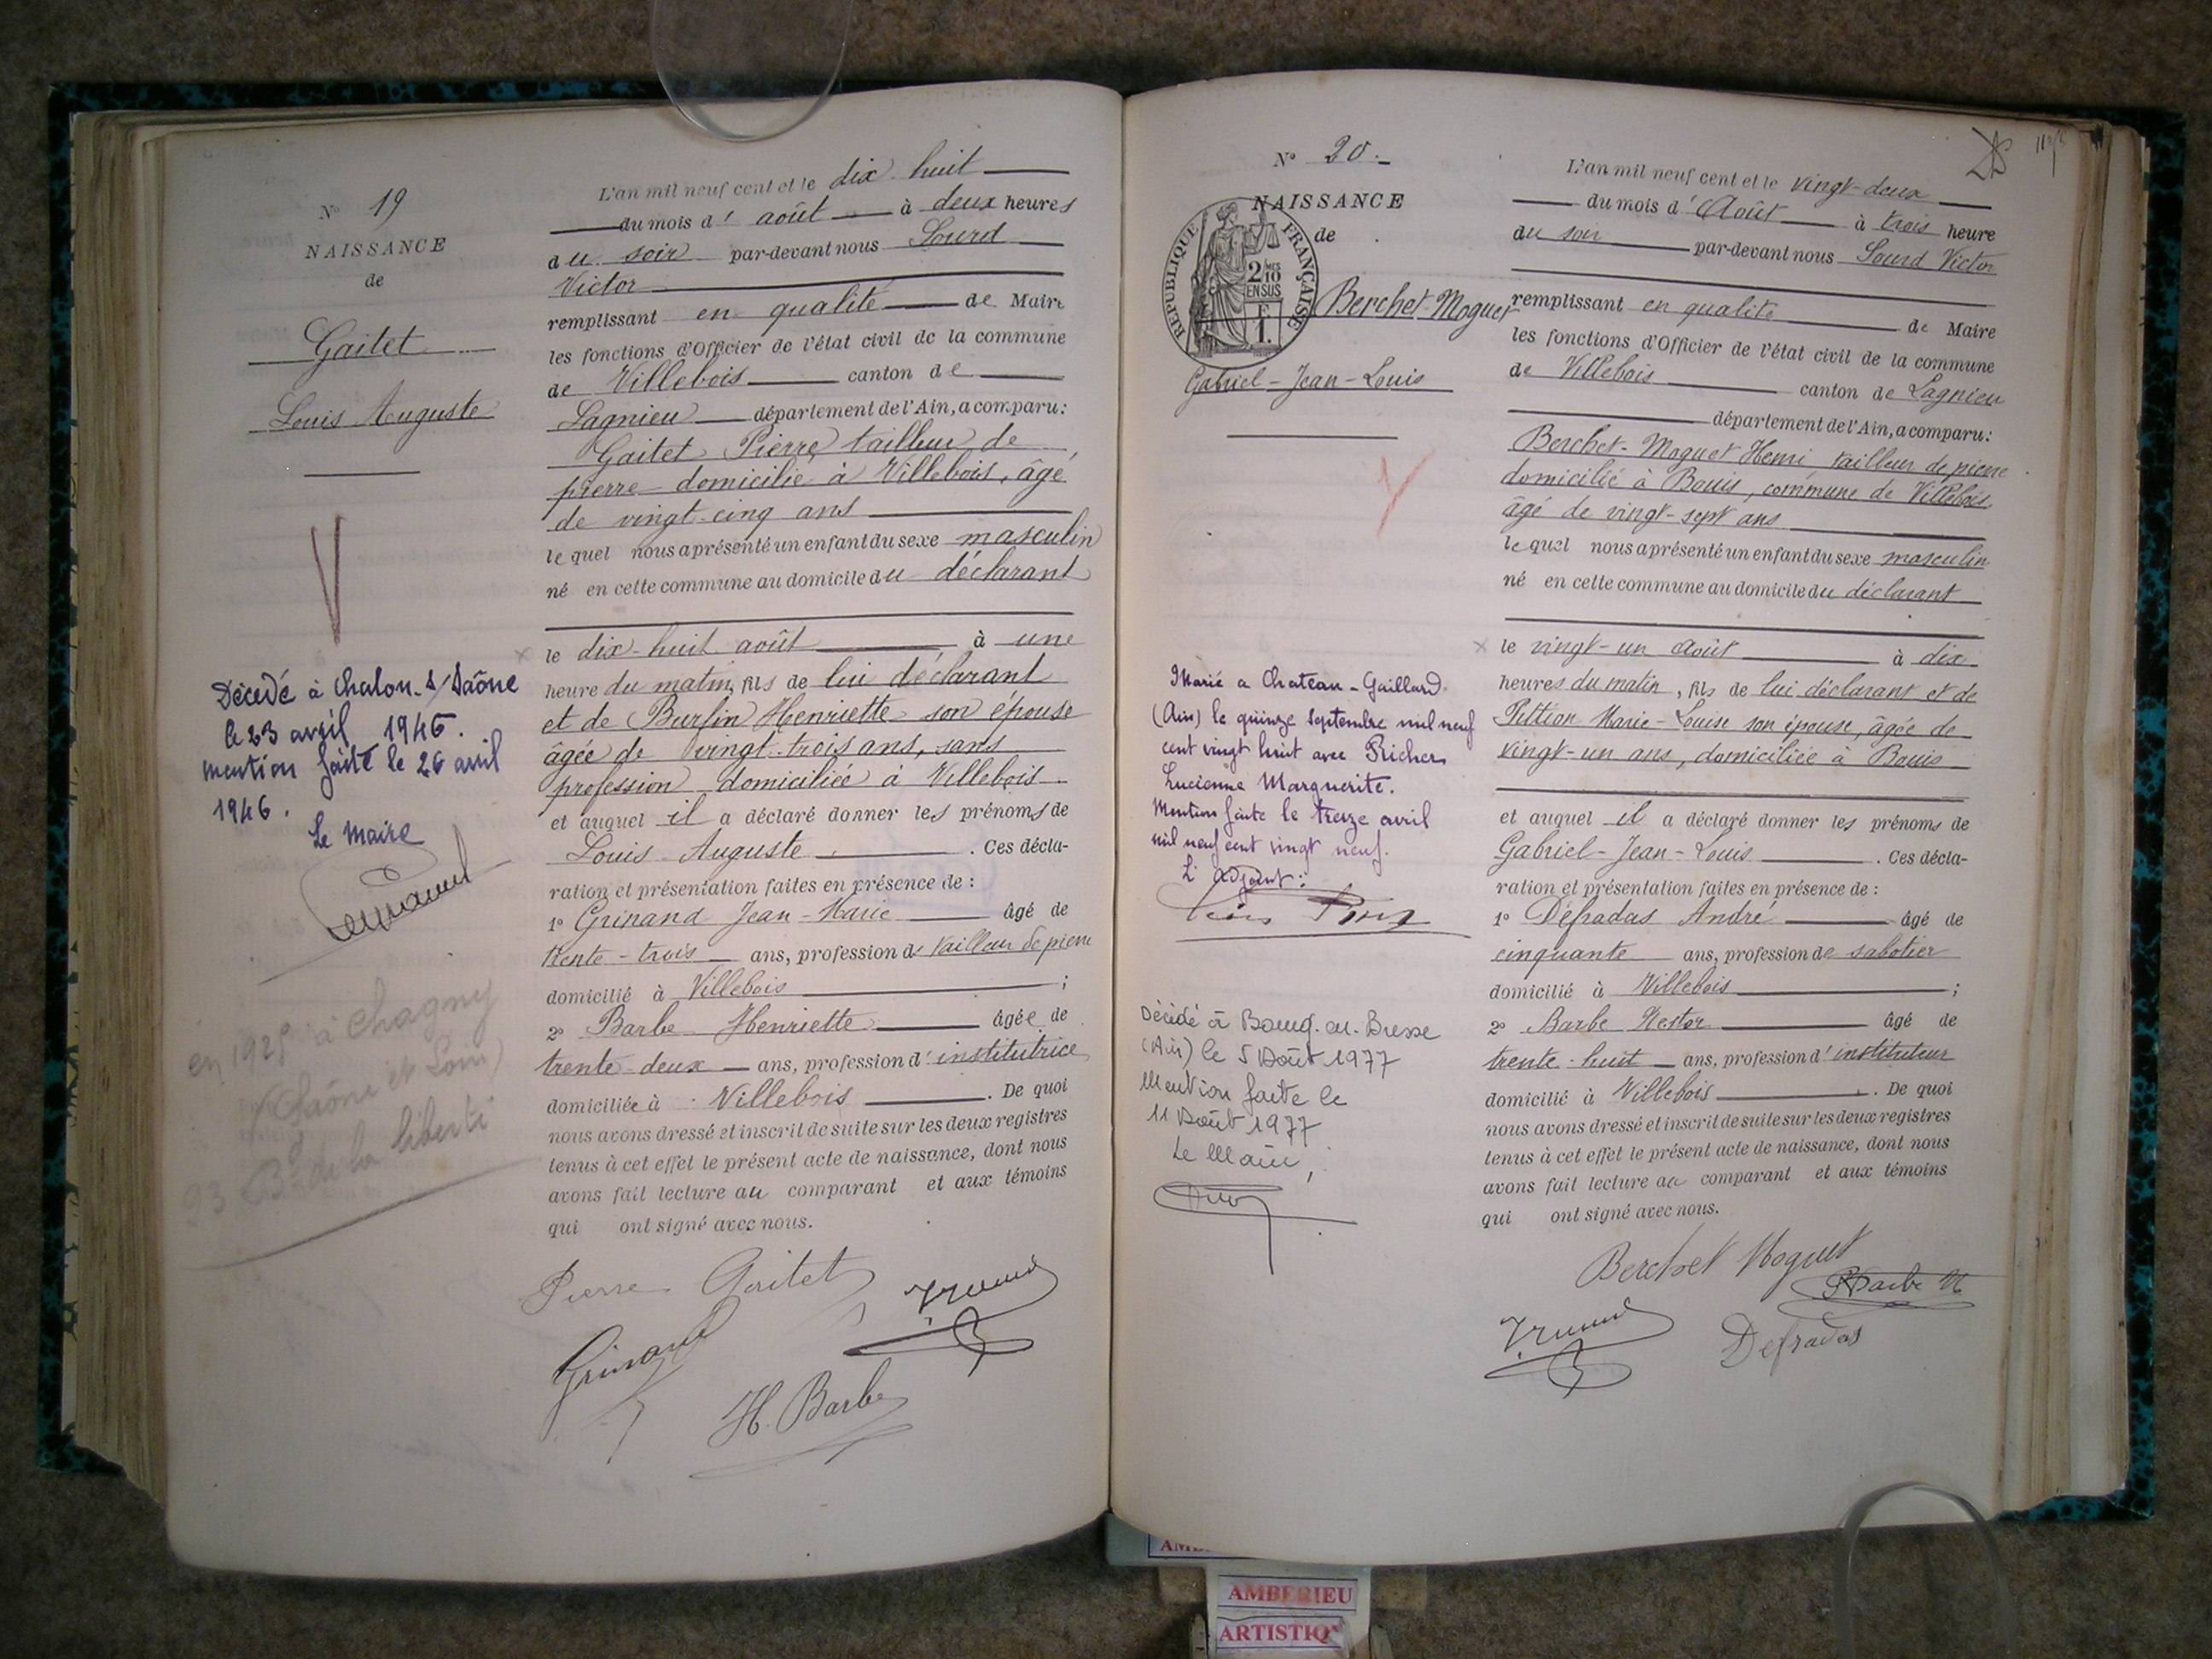 N° 19
NAISSANCE
de
Gaitet
Louis Auguste
Décédé à Chalon-s/Saône
le 23 avril 1946.
mention faite le 26 avril
1946.
Le Maire
en 192 à Chagny
(Saône et Loire)
23 Bd de la liberté
L'an mil neuf cent et le dix huit
du mois d' août à deux heures
du soir par-devant nous Sourd
Victor
remplissant en qualité de Maire
les fonctions d'Officier de l'état civil de la commune
de Villebois canton de
Lagnieu département de l'Ain, a comparu:
Gaitet Pierre tailleur de
pierre domicilié à Villebois, âgé
de vingt-cinq ans
lequel nous a présenté un enfant du sexe masculin
né en cette commune au domicile du déclarant
le dix-huit août à une
heure du matin, fils de lui déclarant
et de Burlin Henriette son épouse
âgée de vingt-trois ans, sans
profession domiciliée à Villebois
et auquel il a déclaré donner les prénoms de
Louis Auguste . Ces décla-
ration et présentation faites en présence de :
1° Grinand Jean-Marie âgé de
trente-trois ans, profession de tailleur de pierre
domicilié à Villebois ;
2° Barbe Henriette âgée de
trente-deux ans, profession d' institutrice
domiciliée à Villebois . De quoi
nous avons dressé et inscrit de suite sur les deux registres
tenus à cet effet le présent acte de naissance, dont nous
avons fait lecture au comparant et aux témoins
qui ont signé avec nous.
Pierre Gaitet
Grinand
H. Barbe
N° 20.
NAISSANCE
de
REPUBLIQUE FRANÇAISE
2/10 MES
EN SUS
F
1.
Berchet-Moguet
Gabriel-Jean-Louis
Marié a Chateau-Gaillard
(Ain) le quinze Septembre mil neuf
cent vingt huit avec Richer
Lucienne Marguerite.
Mention faite le treize avril
mil neuf cent vingt neuf.
L'adjoint:
Décédé à Bourg-en-Bresse
(Ain) le 5 Août 1977
Mention faite le
11 Août 1977
Le Maire,
L'an mil neuf cent et le vingt-deux
du mois d' Août à trois heure
du soir par-devant nous Sourd Victor
remplissant en qualité de Maire
les fonctions d'Officier de l'état civil de la commune
de Villebois canton de Lagnieu
département de l'Ain, a comparu:
Berchet-Moguet Henri tailleur de pierre
domicilié à Bouis, commune de Villebois,
âgé de vingt-sept ans
lequel nous a présenté un enfant du sexe masculin
né en cette commune au domicile du déclarant
le vingt-un août à dix
heures du matin, fils de lui déclarant et de
Pittion Marie-Louise son épouse, âgée de
vingt-un ans, domiciliée à Bouis
et auquel il a déclaré donner les prénoms de
Gabriel-Jean-Louis . Ces décla-
ration et présentation faites en présence de :
1° Défradas André âgé de
cinquante ans, profession de sabotier
domicilié à Villebois ;
2° Barbe Nestor âgé de
trente-huit ans, profession d' instituteur
domicilié à Villebois . De quoi
nous avons dressé et inscrit de suite sur les deux registres
tenus à cet effet le présent acte de naissance, dont nous
avons fait lecture au comparant et aux témoins
qui ont signé avec nous.
Berchet Moguet
Barbe N
Defradas
AMBERIEU
ARTISTIQ